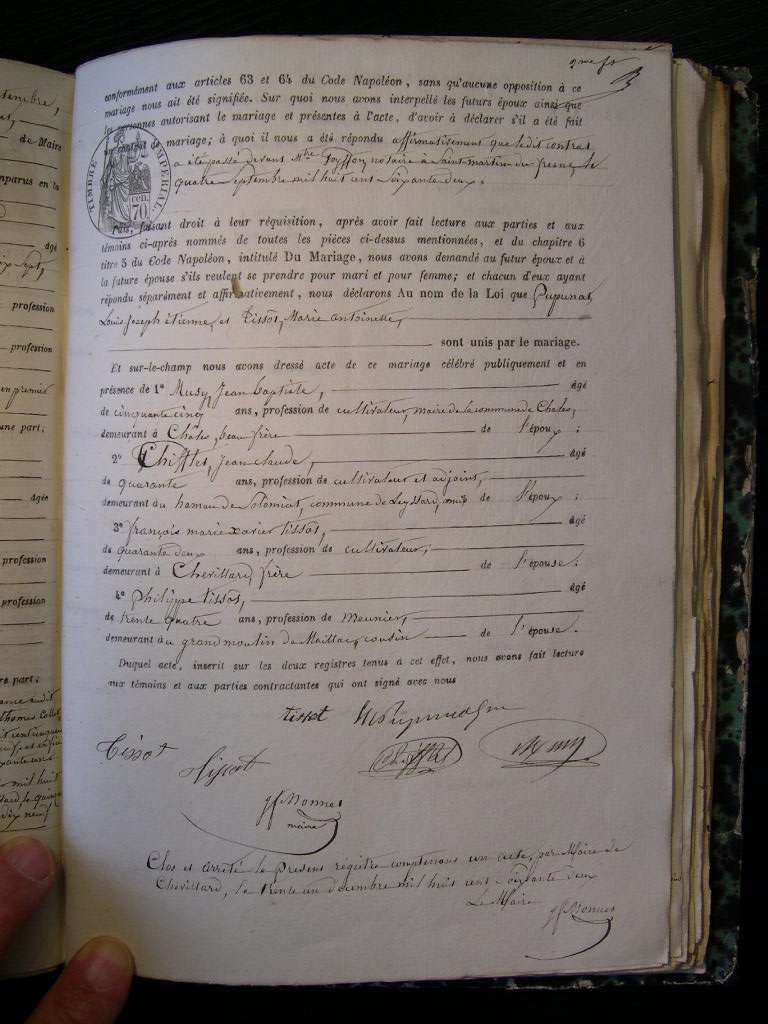 conformément aux articles 63 et 64 du Code Napoléon, sans qu'aucune opposition à ce
mariage nous ait été signifiée. Sur quoi nous avons interpellé les futurs époux ainsi que
les personnes autorisant le mariage et présentes à l'acte, d'avoir à déclarer s'il a été fait
un contrat de mariage; à quoi il nous a été répondu affirmativement que ledit contrat
a été passé devant Mtre notaire à Saint-martin du fresne, le
quatre septembre mil huit cent soixante deux.
TIMBRE IMPÉRIAL
cen.
70
Puis, faisant droit à leur réquisition, après avoir fait lecture aux parties et aux
témoins ci-après nommés de toutes les pièces ci-dessus mentionnées, et du chapitre 6
titre 5 du Code Napoléon, intitulé Du Mariage, nous avons demandé au futur époux et à
la future épouse s'ils veulent se prendre pour mari et pour femme; et chacun d'eux ayant
répondu séparément et affirmativement, nous déclarons Au nom de la Loi que Pupunat,
Louis Joseph étienne, et Tissot, Marie antoinette,
sont unis par le mariage.
Et sur-le-champ nous avons dressé acte de ce mariage célébré publiquement et en
présence de 1° Musy, Jean baptiste, âgé
de cinquante cinq ans, profession de cultivateur, maire de la commune de Châles,
demeurant à Châles, beau frère de l'époux;
2° Chifflet, Jean claude, âgé
de quarante ans, profession de cultivateur et adjoint,
demeurant au hameau de Solomiat, commune de Leyssard, ami de l'époux;
3° françois marie xavier tissot, âgé
de quarante deux ans, profession de cultivateur,
demeurant à Chevillard, frère de l'épouse;
4° philippe tissot, âgé
de trente quatre ans, profession de meunier,
demeurant au grand moulin de Maillac, cousin de l'épouse.
Duquel acte, inscrit sur les deux registres tenus à cet effet, nous avons fait lecture
aux témoins et aux parties contractantes qui ont signé avec nous
tissot
Tissot tissot Chifflet Musy
jf Monnet
maire
Clos et arrêté le présent régistre contenant un acte, par Maire de
Chevillard, le trente un décembre mil huit cent soixante deux
Le Maire
jf Monnet
de Maire
comparus en la
âgé
profession
profession
une part;
âgée
profession
profession